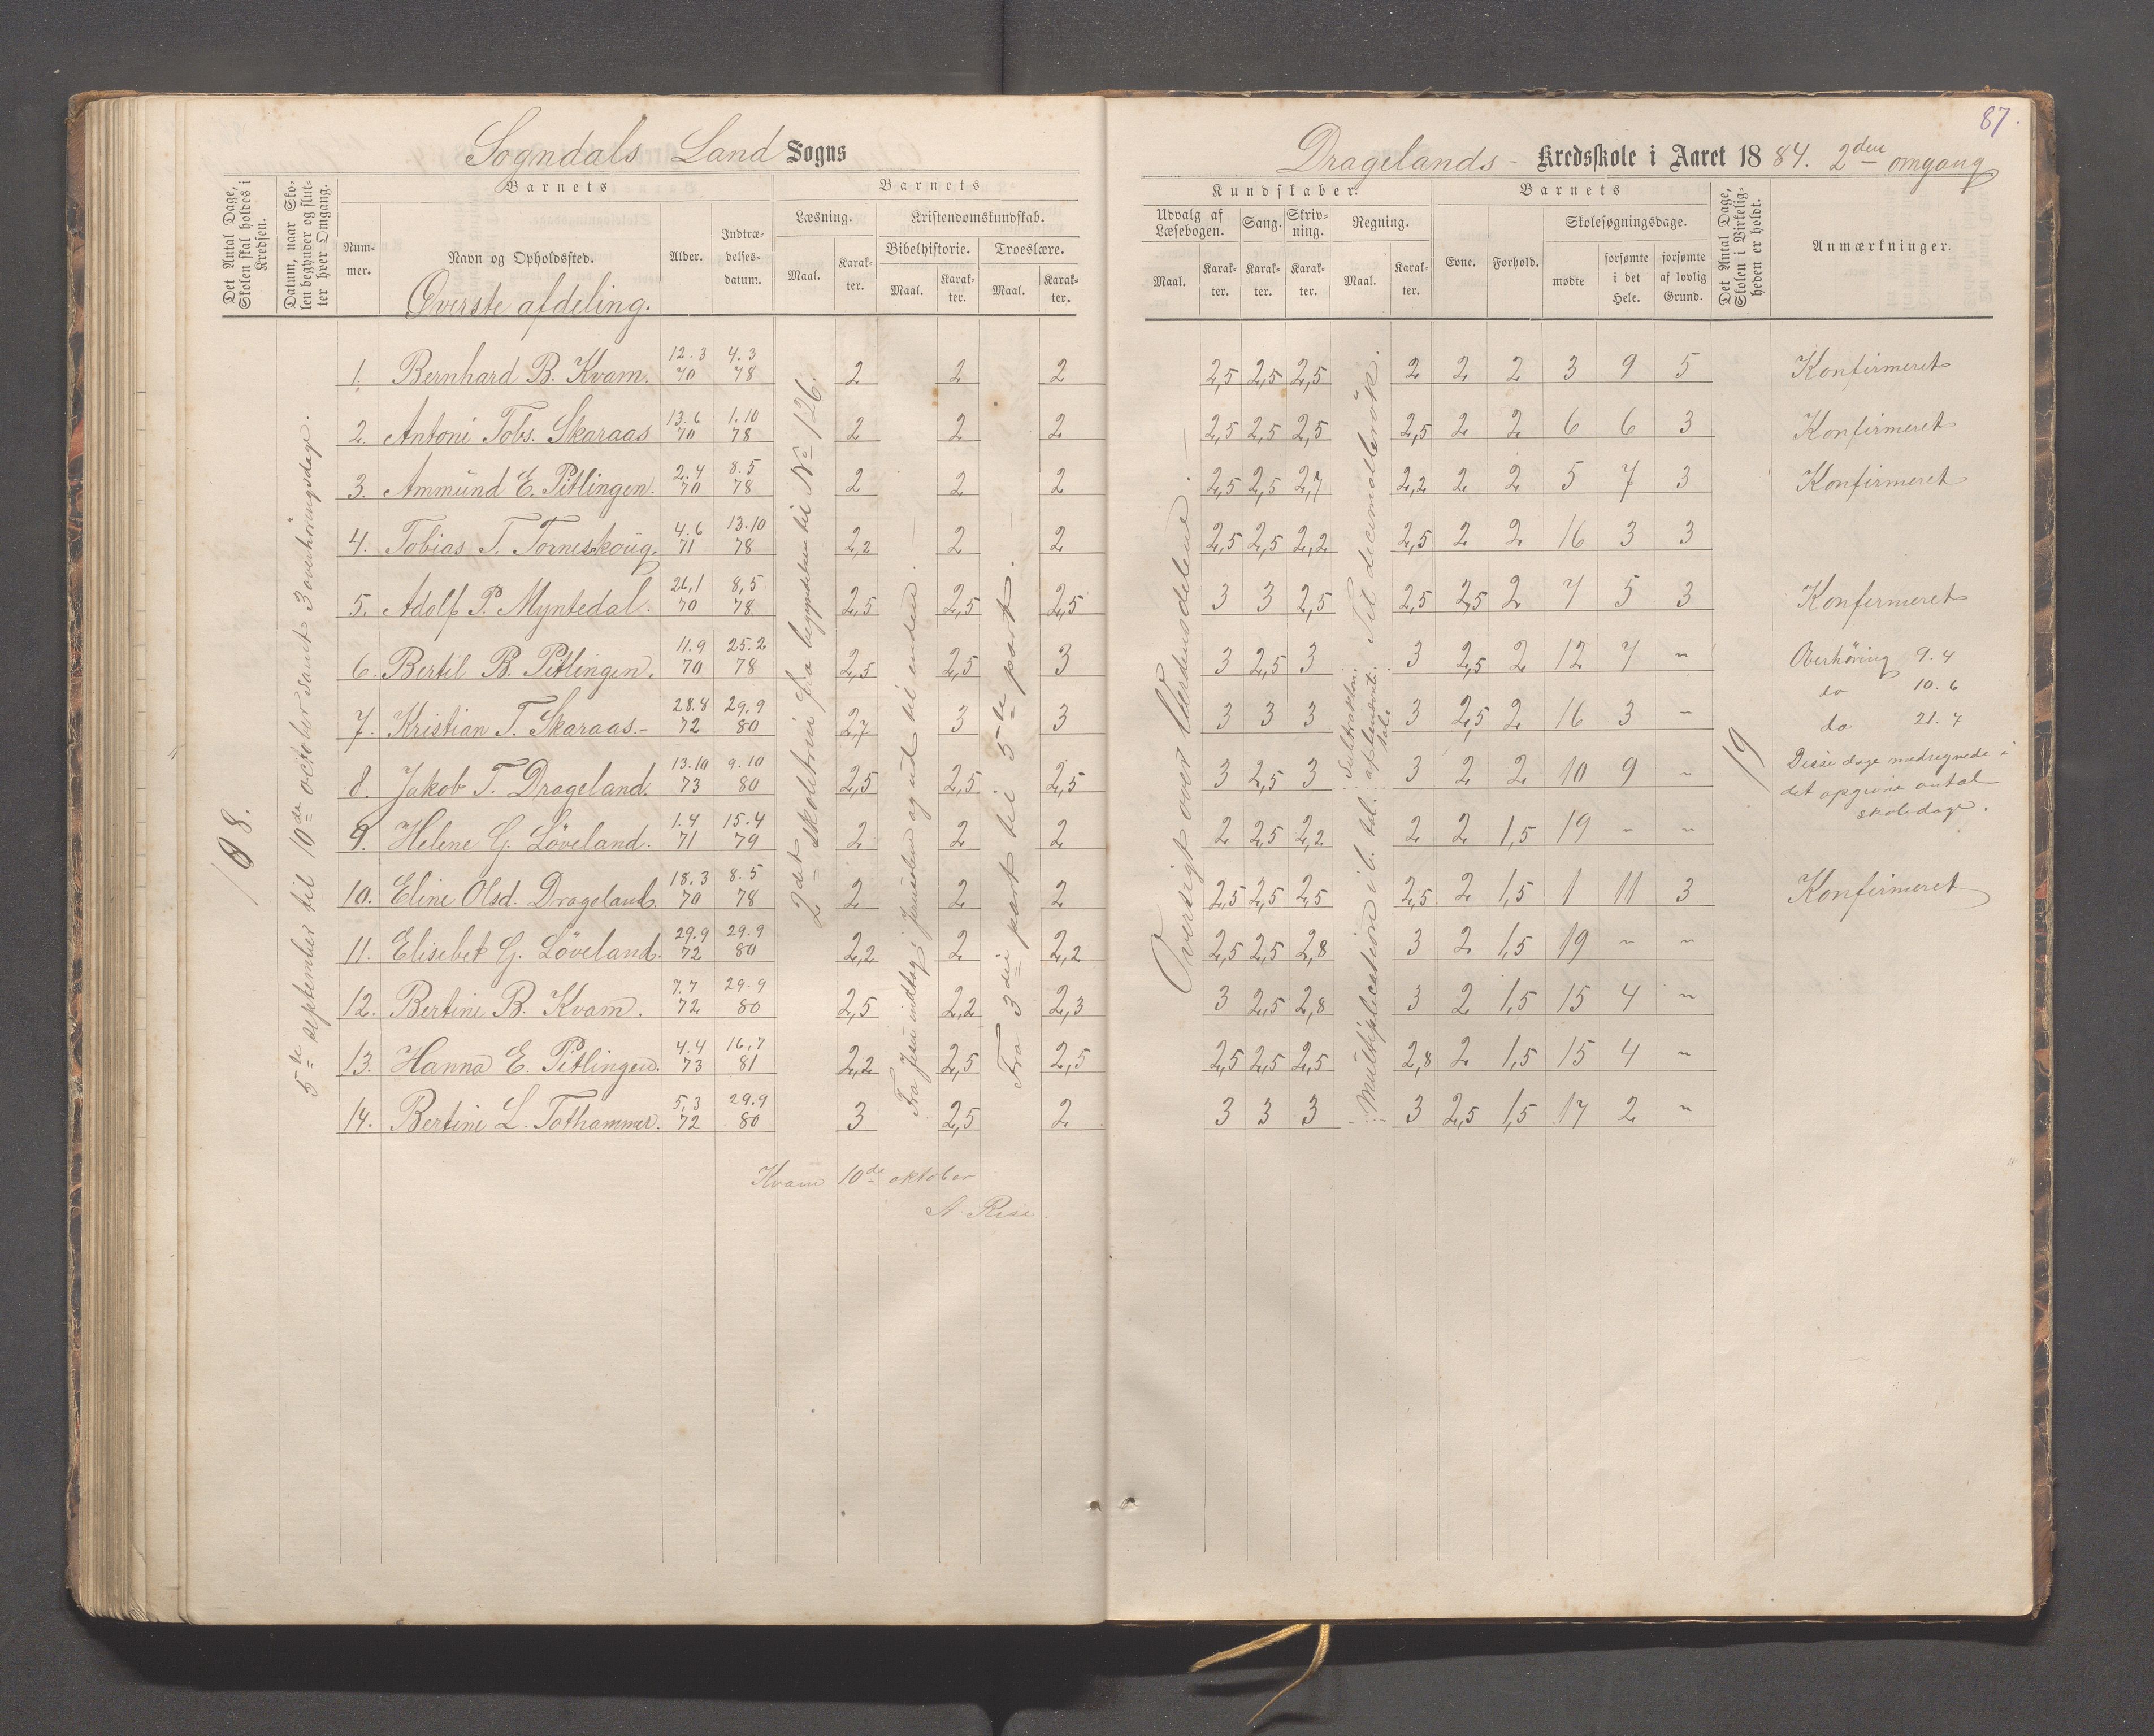 87.
Sogndals Land Sogns
Dragelands- Kredsskole i Aaret 1884. 2den omgang
Det Antal Dage, Skolen skal holdes i Kredsen.
Datum, naar Skolen begynder og slutter hver Omgang.
Barnets
Nummer.
Navn og Opholdssted.
Alder.
Indtrædelsesdatum.
Barnets
Læsning.
Maal.
Karakter.
Kristendomskundskab.
Bibelhistorie.
Maal.
Karakter.
Troeslære.
Maal.
Karakter.
Kundskaber.
Udvalg af Læsebogen.
Maal.
Karakter.
Sang.
Karakter.
Skrivning.
Karakter.
Regning.
Maal.
Karakter.
Barnets
Evne.
Forhold.
Skolesøgningsdage.
mødte
forsømte i det Hele.
forsømte af lovlig Grund.
Det Antal Dage, Skolen i Virkeligheden er holdt.
Anmærkninger.
Øverste afdeling.
1. Bernhard B. Kvam. 12.3 70 4.3 78 2 2 2 2,5 2,5 2,5 2 2 2 3 9 5 Konfirmeret
2. Antoni Tobs. Skaraas 13.6 70 1.10 78 2 2 2 2,5 2,5 2,5 2,5 2 2 6 6 3 Konfirmeret
3. Ammund E. Pitlingen. 2.4 70 8.5 78 2 2 2 2,5 2,5 2,7 2,2 2 2 5 7 3 Konfirmeret
4. Tobias T. Torneskoug. 4.6 71 13.10 78 2,2 2 2 2,5 2,5 2,2 2,5 2 2 16 3 3
5. Adolf P. Myntedal. 26,1 70 8,5 78 2,5 2,5 2,5 3 3 2,5 2,5 2,5 2 7 5 3 Konfirmeret
6. Bertil B. Pitlingen. 11.9 70 25.2 78 2,5 2,5 3 3 2,5 3 3 2,5 2 12 7 " Overhöring 9.4
do 10.6
7. Kristian T. Skaraas.- 28.8 72 29.9 80 2,7 3 3 3 3 3 3 2,5 2 16 3 - do 21.7
8. Jakob T. Drageland. 13.10 73 9.10 80 2,5 2,5 2,5 3 2,5 3 3 2 2 10 9 " Disse dage medregnede i
det opgivne antal
skoledage.
9. Helene G. Löveland. 1.4 71 15.4 79 2 2 2 2 2,5 2,2 2 2 1,5 19 " "
10. Eline Olsd. Drageland. 18.3 70 8.5 78 2 2 2 2,5 2,5 2,5 2,5 2 1,5 1 11 3 Konfirmeret
11. Elisebet G. Löveland. 29.9 72 29.9 80 2,2 2 2,2 2,5 2,5 2,8 3 2 1,5 19 " "
12. Bertine B. Kvam. 7.7 72 29.9 80 2,5 2,2 2,3 3 2,5 2,8 3 2 1,5 15 4 "
13. Hanna E. Pitlingen. 4.4 73 16,7 81 2,2 2,5 2,5 2,5 2,5 2,5 2,8 2 1,5 15 4 "
14. Bertine L. Tothammer. 5.3 72 29.9 80 3 2,5 2 3 3 3 3 2,5 1,5 17 2 "
108.
5te september til 10de october samt 3 overhöringsdage.
2det skoletrin fra begyndelsen til No 126.
Fra Jesu indtog i Jerusalem og ud til enden.
Fra 3die part til 5te part.
Oversigt over Verdensdelene.
Multiplication i b. tal.
Subtraktion
Til decimalbrök.
19
Kvam 10de oktober
A. Rise.